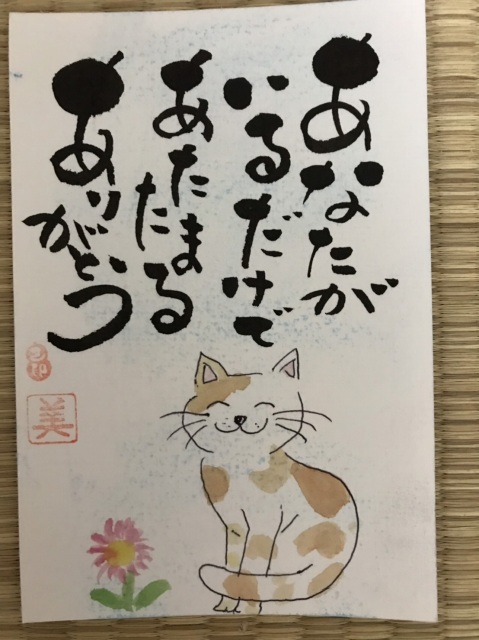 あなたが
いるだけで
あたたまる
ありがとう
美